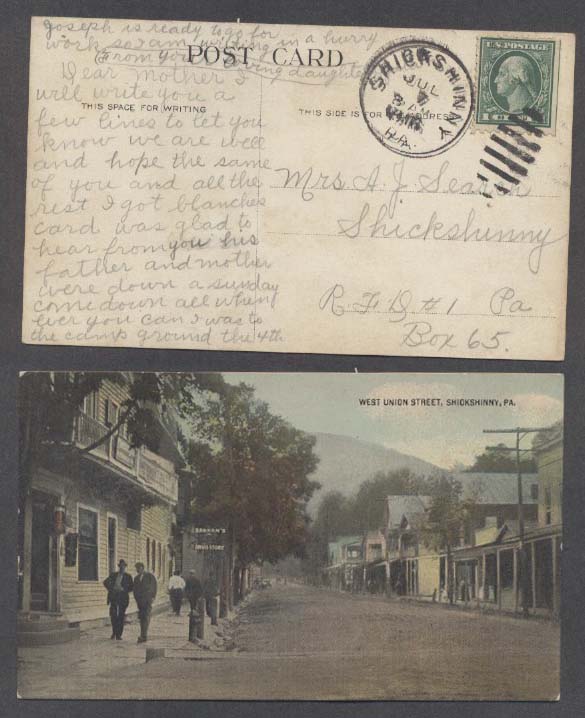 Joseph is ready to go for
work so I am writing in a hurry
From your loving daughter
POST CARD
Dear Mother I
will write you a
THIS SPACE FOR WRITING
few lines to let you
know we are well
and hope the same
of you and all the
rest I got blanches
card was glad to
hear from you his
father and mother
were down a sunday
come down all when
ever you can I was to
the camp ground the 4th
THIS SIDE IS FOR ADDRESS
SHICKSHINNY
JUL
PA.
U.S. POSTAGE
Mrs A. J.
Shickshinny
R.F.D #1 Pa
Box 65.
WEST UNION STREET, SHICKSHINNY, PA.
DRUG STORE